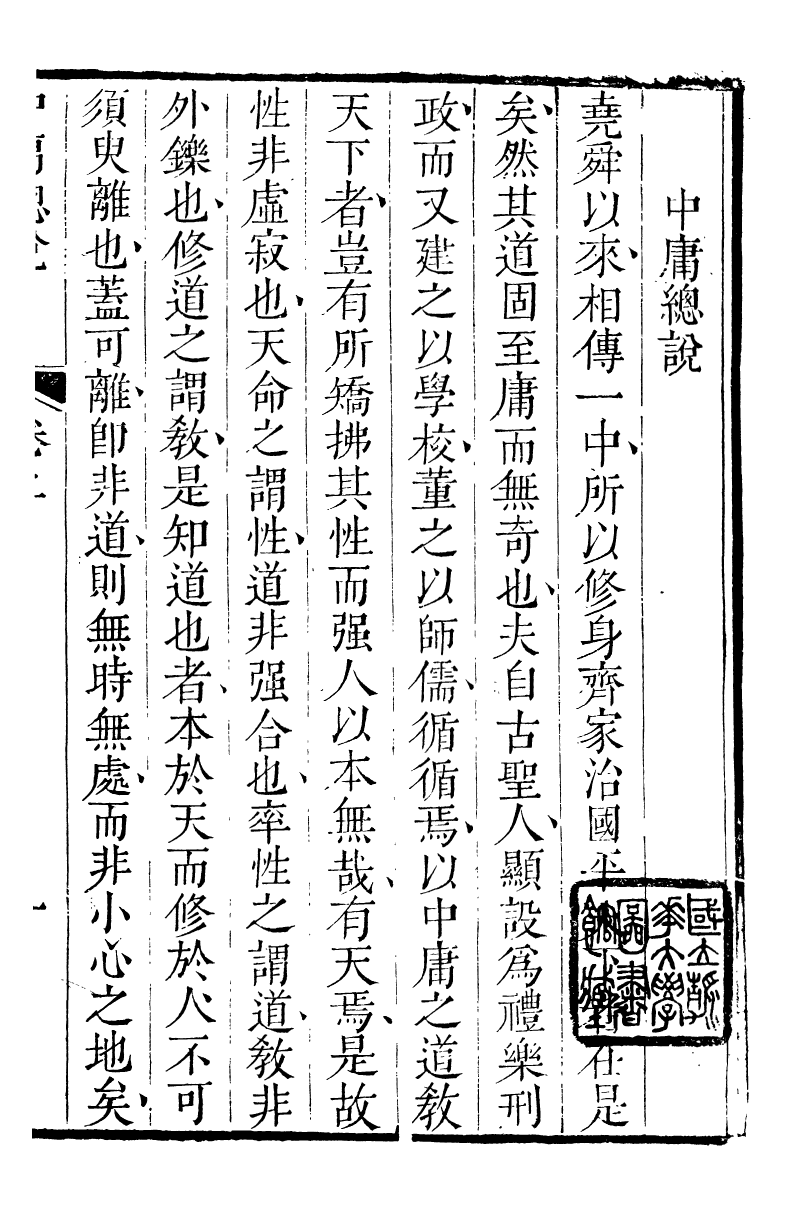 中庸總說
堯舜以來相傳一中所以修身齊家治國平在是
矣然其道固至庸而無奇也夫自古聖人顯設爲禮樂刑
政而又建之以學校董之以師儒循循焉以中庸之道敎
天下者豈有所矯拂其性而强人以本無哉有天焉是故
性非虛寂也天命之謂性道非强合也率性之謂道敎非
外鑠也修道之謂敎是知道也者本於天而修於人不可
須臾離也蓋可離卽非道則無時無處而非小心之地矣
國立清華大學圖書館藏